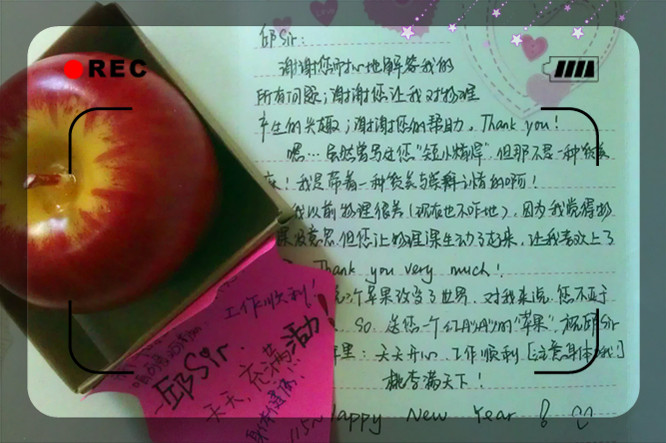 REC
邱Sir：
谢谢您耐心地解答我的
所有问题；谢谢您让我对物理
产生的兴趣；谢谢您的帮助。Thank you!
嗯…虽然曾写过您"短小精悍"但那不是一种贬义
！我是带着一种 的啊！
我以前物理很差（现在也不咋地），因为我觉得物
没意思但您让物理课生动了起来，让我喜欢上了
Thank you very much!
个苹果改变了世界，对我来说，您不亚于
So 送您一个红彤彤的"苹果"，祝邱Sir
里：天天开心 工作顺利 [注意身体哦!]
桃李满天下！
Happy New Year！
工作顺利！
邱Sir.
天天充满活力！
身体健康！